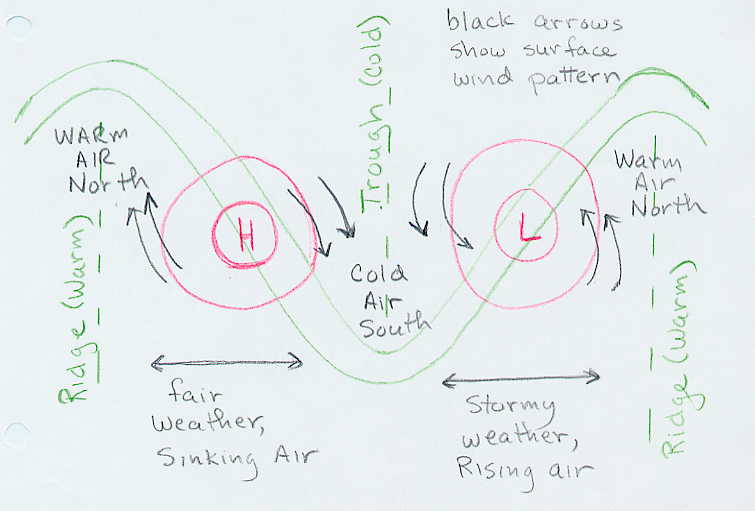 black arrows
show surface
wind pattern
Trough (Cold)
WARM
AIR
North
Warm
Air
North
H
L
Cold
Air
South
Ridge (Warm)
Ridge (Warm)
fair
weather,
Sinking Air
Stormy
weather,
Rising air